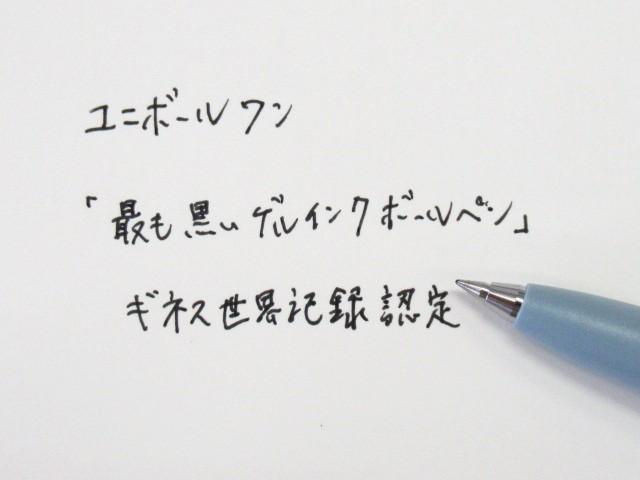 ユニボールワン
「最も黒いゲルインクボールペン」
ギネス世界記録認定